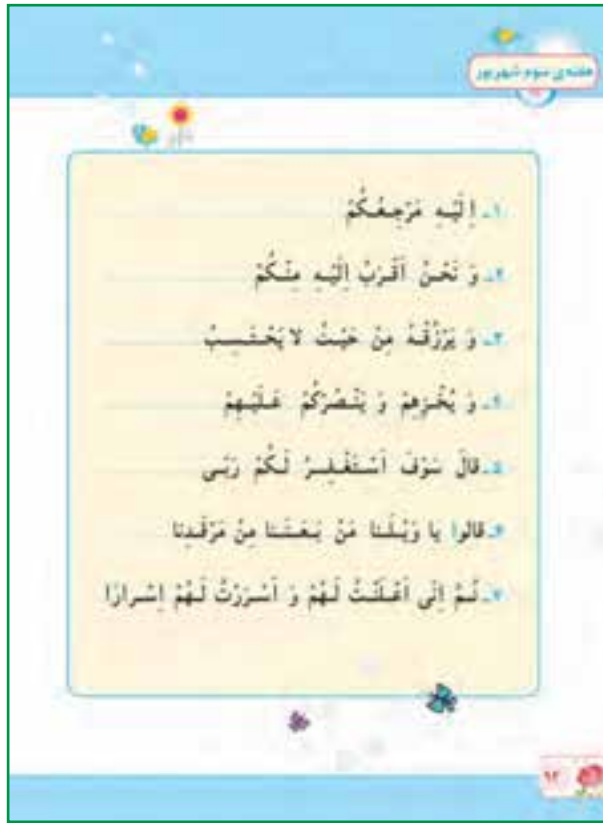 هفته‌ی سوم شهریور
۱ـ اِلَیْهِ مَرْجِعُکُمْ
۲ـ وَ نَحْنُ اَقْرَبُ اِلَیْهِ مِنْکُمْ
۳ـ وَ یَرْزُقْهُ مِنْ حَیْثُ لا یَحْتَسِبُ
۴ـ وَ یُخْزِهِمْ وَ یَنْصُرْکُمْ عَلَیْهِمْ
۵ـ قالَ سَوْفَ اَسْتَغْفِرُ لَکُمْ رَبّی
۶ـ قالوا یا وَیْلَنا مَنْ بَعَثَنا مِنْ مَرْقَدِنا
۷ـ ثُمَّ اِنّی اَعْلَنْتُ لَهُمْ وَ اَسْرَرْتُ لَهُمْ اِسْرارًا
۱۲